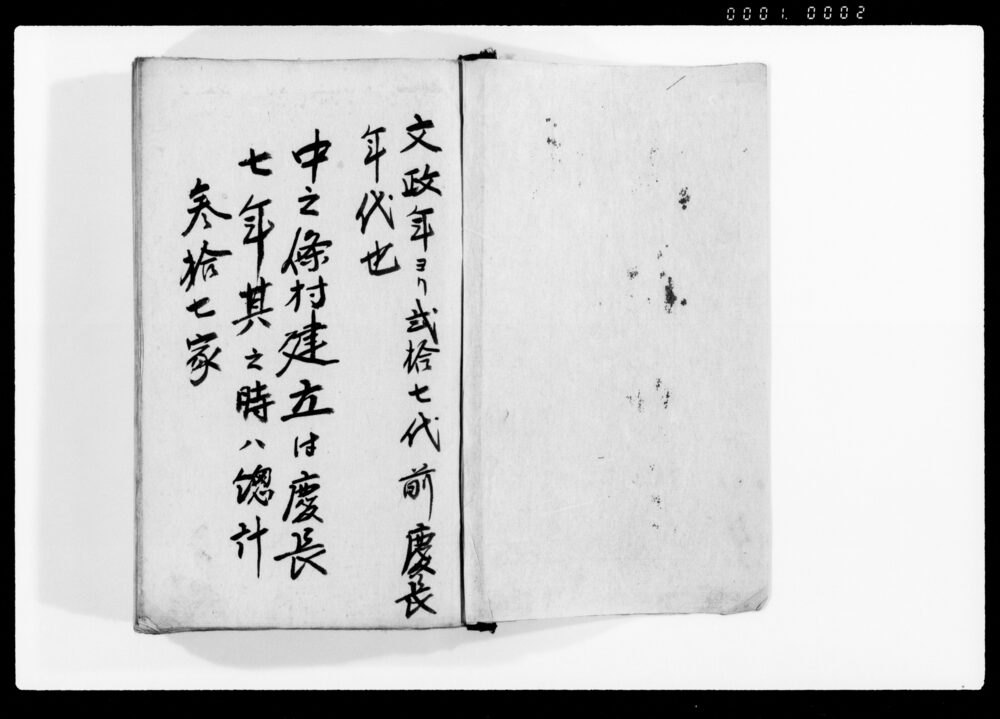 0001. 0002
文政年ヨリ弐拾七代前慶長
年代也
中之條村建立は慶長
七年其之時ハ總計
叁拾七家